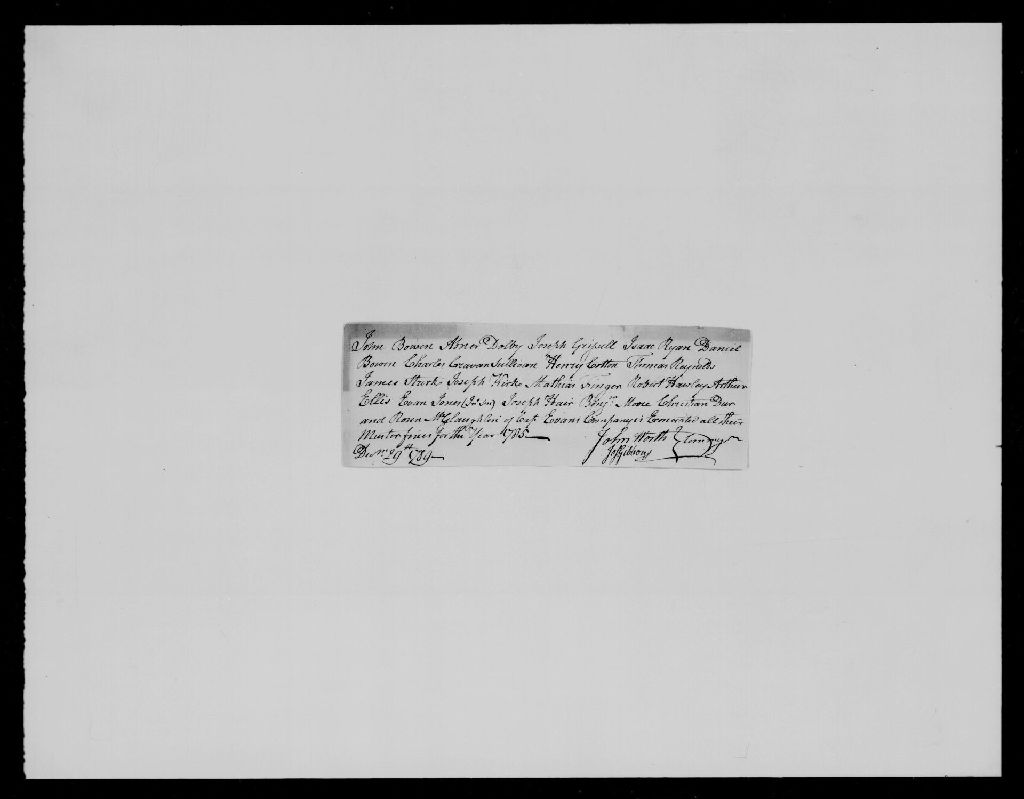 John Bowen Abner Dolby Joseph Grissell Isaac Ryan Daniel
Bowen Charles Cravan Sullivan Henry Cotton Thomas Reynolds
James Stark Joseph Kirk Mathias Finger Robert Hawley Arthur
Ellis Evan Jones Joseph Hair Benjn. Moore Christian Der
and McClaughlin of Capt Evans Company is Exonerated all their
Muster fines for the Year 1785
John Worth
Decmr. 29th 1789 Jos Gibbons